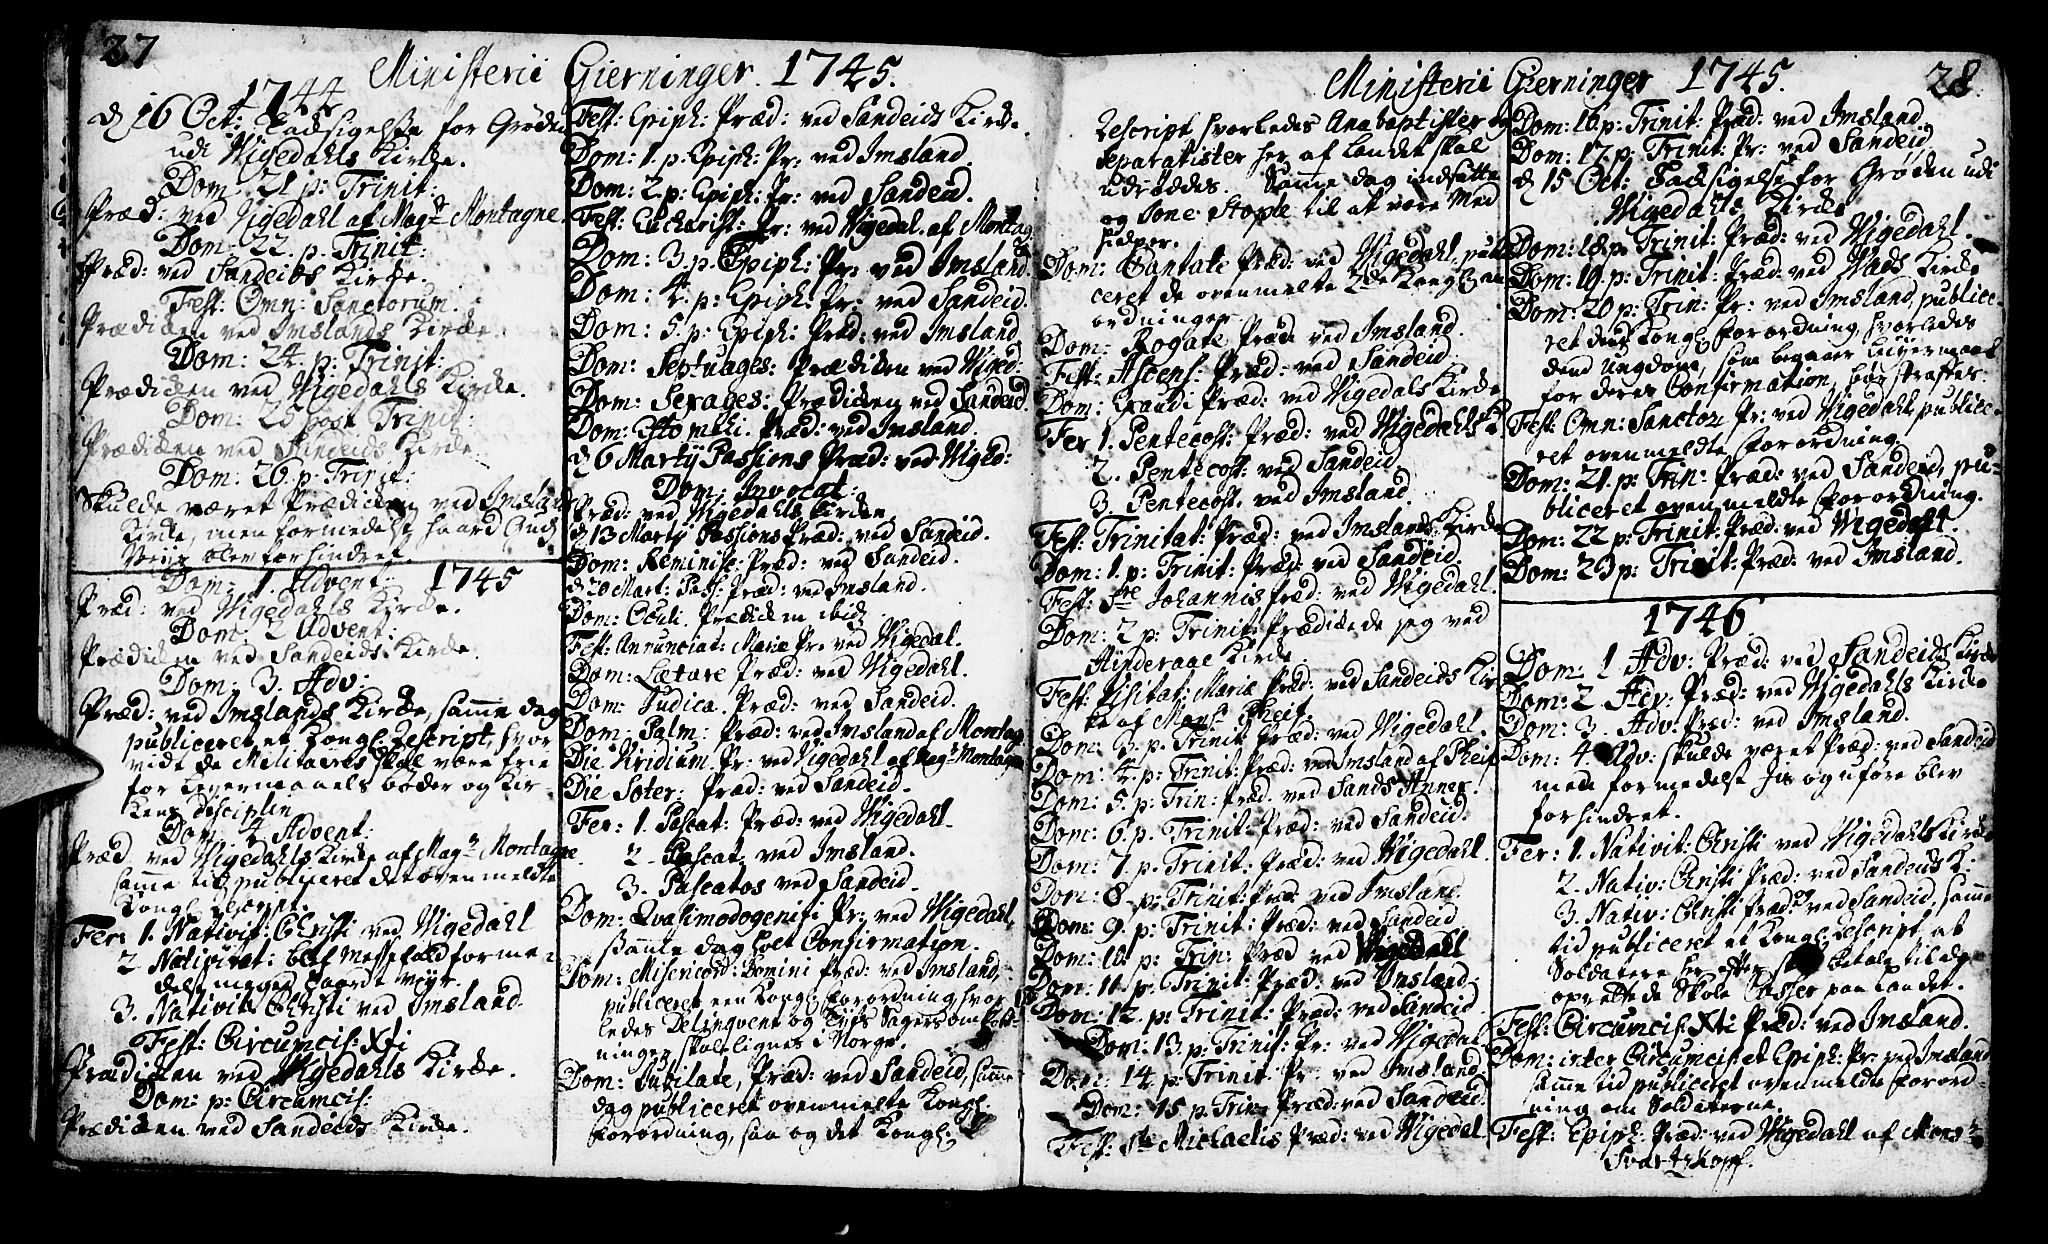 27
Ministerii Gierninger 1745.
1744
d 16 Oct: Taksigelse for Grøden
udi Wigedahls Kirke.
Dom: 21 p: Trinit:
Præd: ved Vigedahl af Magr Montagne
Dom: 22. p. Trinit:
Præd: ved Sandeids Kirke.
Fest: Omn: Sanctorum.
Prædiken ved Imslands Kirke.
Dom: 24. p: Trinit:
Prædiken ved Wigedahls Kirke.
Dom: 25 post Trinit:
Prædiken ved Sandeids Kirke
Dom: 26. p. Trinit:
Skulde været Prædiken ved Imslands
Kirke, men formedelst haard
Veijr blev forhindret.
Dom: 1. Advent: 1745
Præd: ved Wigedahls Kirke.
Dom: 2 Advent:
Prædiken ved Sandeids Kirke.
Dom: 3. Adv:
Præd: ved Imslands Kirke, samme dag
publiceret et Kongl: Rescript, hvor
vidt de Militaires skal være frie
for Leyermaals bøder og Kir
kens Disciplin
Dom: 4 Advent:
Præd ved Wigedahls Kirke af Magr Montagne
samme tid publiceret det ovenmeldte
Kongl:
Fer: 1. Nativit: Christi ved Wigedahl
2 Nativitat: blef Messefald forme-
delst meget haardt Vejr.
3. Nativit Christi ved Imsland.
Fest: Circumcis: Xti
Prædiken ved Wigedahls Kirke.
Dom: p: Circumcis:
Prædiken ved Sandeids Kirke.
Fest: Epiph: Præd: ved Sandeids Kirke.
Dom: 1. p: Epiph: Pr: ved Imsland.
Dom: 2 p: Epiph: Pr: ved Sandeid.
Fest: Eucharist: Pr: ved Wigedal. af Montag
Dom: 3. p. Epiph: Pr: ved Imsland.
Dom: 4. p: Epiph: Pr: ved Sandeid.
Dom: 5. p: Epiph: Præd: ved Imsland
Dom: Septuages: Prædiken ved Wiged:
Dom: Sexages: Prædiken ved Sandeid.
Dom: Estomihi. Præd: ved Imsland.
d 6 Martij Passions Præd: ved Wiged:
Dom: Invocat:
Præd: ved Wigedahls Kirke
d 13 Martij Passions Præd: ved Sandeid.
Dom: Reminisc: Præd: ved Sandeid.
d 20 Mart: Pass: Præd: ved Imsland.
Dom: Oculi. Prædiken ibid:
Fest: Annunciat: Mariæ Pr: ved Wigedal.
Dom: Lætare Præd: ved Wigedahl.
Dom: Judica. Præd: ved Sandeid.
Dom: Palm: Præd: ved Imsland af Montag
Die Viridium. Pr: ved Wigedahl af Magr Montagne
Die Soter: Præd: ved Sandeid.
Fer: 1. Pascat: Præd: ved Wigedahl.
2. Pascat: ved Imsland.
3. Pascatos ved Sandeid.
Dom: Qvasimodogeniti Pr: ved Wigedahl,
samme dag holt Confirmation.
Dom: Misericord: Domini Præd: ved Imsland,
publiceret een Kongl: Forordning hvor
ledes Delinqvent og Tyfs Sagers omkost-
ninger skal lignes i Norge.
Dom: Jubilate, Præd: ved Sandeid, samme
dag publiceret ovenmelte Kongl:
Forordning, saa og det Kongl:
Ministerii Gierninger 1745.
28
Rescript hvorledes Anabaptister og
Separatister her af Landet skal
udryddes. Samme dag indsatte
og Sone Stople til at være Med
hielper.
Dom: Cantate Præd: ved Wigedahl, publi
ceret de ovenmelte 2de Kongl:
ordninger.
Dom: Rogate Præd: ved Imsland.
Fest: Ascens: Præd: ved Sandeid.
Dom: Exaudi Præd: ved Wigedals Kirke
Fer 1. Pentecost: Præd: ved Wigedahls K
2. Pentecost: ved Sandeid.
3. Pentecost. ved Imsland.
Fest: Trinitat: Præd: ved Imslands Kirke
Dom: 1. p: Trinit: Præd: ved Sandeid.
Fest: Ste Johannis Præd: ved Wigedahl.
Dom: 2 p: Trinit: Prædikede jeg ved
Hinderaae Kirke.
Fest: Visitat: Mariæ Præd: ved Sandeids Kir
ke af Monsr Pheif.
Dom: 3. p. Trinit Præd: ved Wigedahl.
Dom: 4. p: Trinit: Præd: ved Imsland af Pheif
Dom: 5. p: Trin: Præd. ved Sands Annex.
Dom: 6. p. Trinit: Præd: ved Sandeid.
Dom: 7. p. Trinit: Præd: ved Wigedahl.
Dom: 8. p: Trinit: Præd ved Imsland.
Dom: 9. p: Trinit: Præd: ved Sandeid
Dom: 10. p: Trin: Præd ved Wigedahl
Dom: 11. p: Trinit: Præd: ved Imsland:
Dom: 12. p: Trinit: Præd: ved Sandeid
Dom: 13 p: Trinit: Pr: ved Wigedal.
Dom: 14. p: Trinit. Pr: ved Imsland
Dom: 15. p. Trin: Præd: ved Sandeid.
Fest: Ste Michaelis Præd: ved Wigedal.
Dom: 16. p: Trinit: Præd: ved Imsland.
Dom: 17. p: Trinit: Pr: ved Sandeid,
d 15 Oct: Taksigelse for Grøden udi
Wigedahls Kirke
Dom: 18. p. Trinit: Præd: ved Wigedahl.
Dom: 19. p: Trinit: Præd: ved Wads Kirke
Dom: 20 p: Trin: Pr: ved Imsland, publice-
ret den Kongl: Forordning, hvorledes
dend Ungdom, som begaaer Leyermaal
for deres Confirmation, bør straffes.
Fest: Omn: Sanctor Pr: ved Wigedahl, public-
ret ovenmeldte Forordning.
Dom: 21. p: Trin: Præd: ved Sandeid, pu-
bliceret ovenmeldte Forordning.
Dom: 22 p: Trinit: Præd: ved Wigedahl.
Dom: 23 p: Trinit: Præd: ved Imsland.
1746
Dom: 1 Adv: Præd: ved Sandeids Kirke
Dom: 2 Adv: Præd: ved Wigedahls Kirke
Dom: 3. Adv. Præd: ved Imsland.
Dom: 4. Adv: skulde været Præd: ved Sandeid
men formedelst Jis og uføre blev
forhindret.
Fer: 1. Nativit: Christi ved Wigedahls Kirke
2. Nativ: Christi Præd: ved Sandeids K:
3. Nativ: Christi Præd: ved Sandeid, samme
tid publiceret et Kongl: Rescript at
Soldatere her efter skal betale til de
oprettede Skole Casser paa Landet.
Fest: Circumcis: Xti Præd: ved Imsland.
Dom: inter Circumcis: et Epiph: Pr: ved Imsland
samme tid publiceret ovenmelde Forord-
ning om Soldaterne.
Fest: Epiph: Præd: ved Wigedahl af Monsr
Svartzkopf.